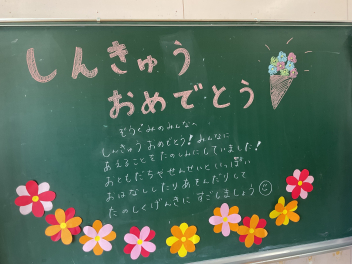 しんきゅう
おめでとう
ぞうぐみのみんなへ
しんきゅう おめでとう！みんなに
あえることをたのしみにしていました！
おともだちやせんせいと いっぱい
おはなししたり あそんだりして
たのしくげんきに すごしましょう